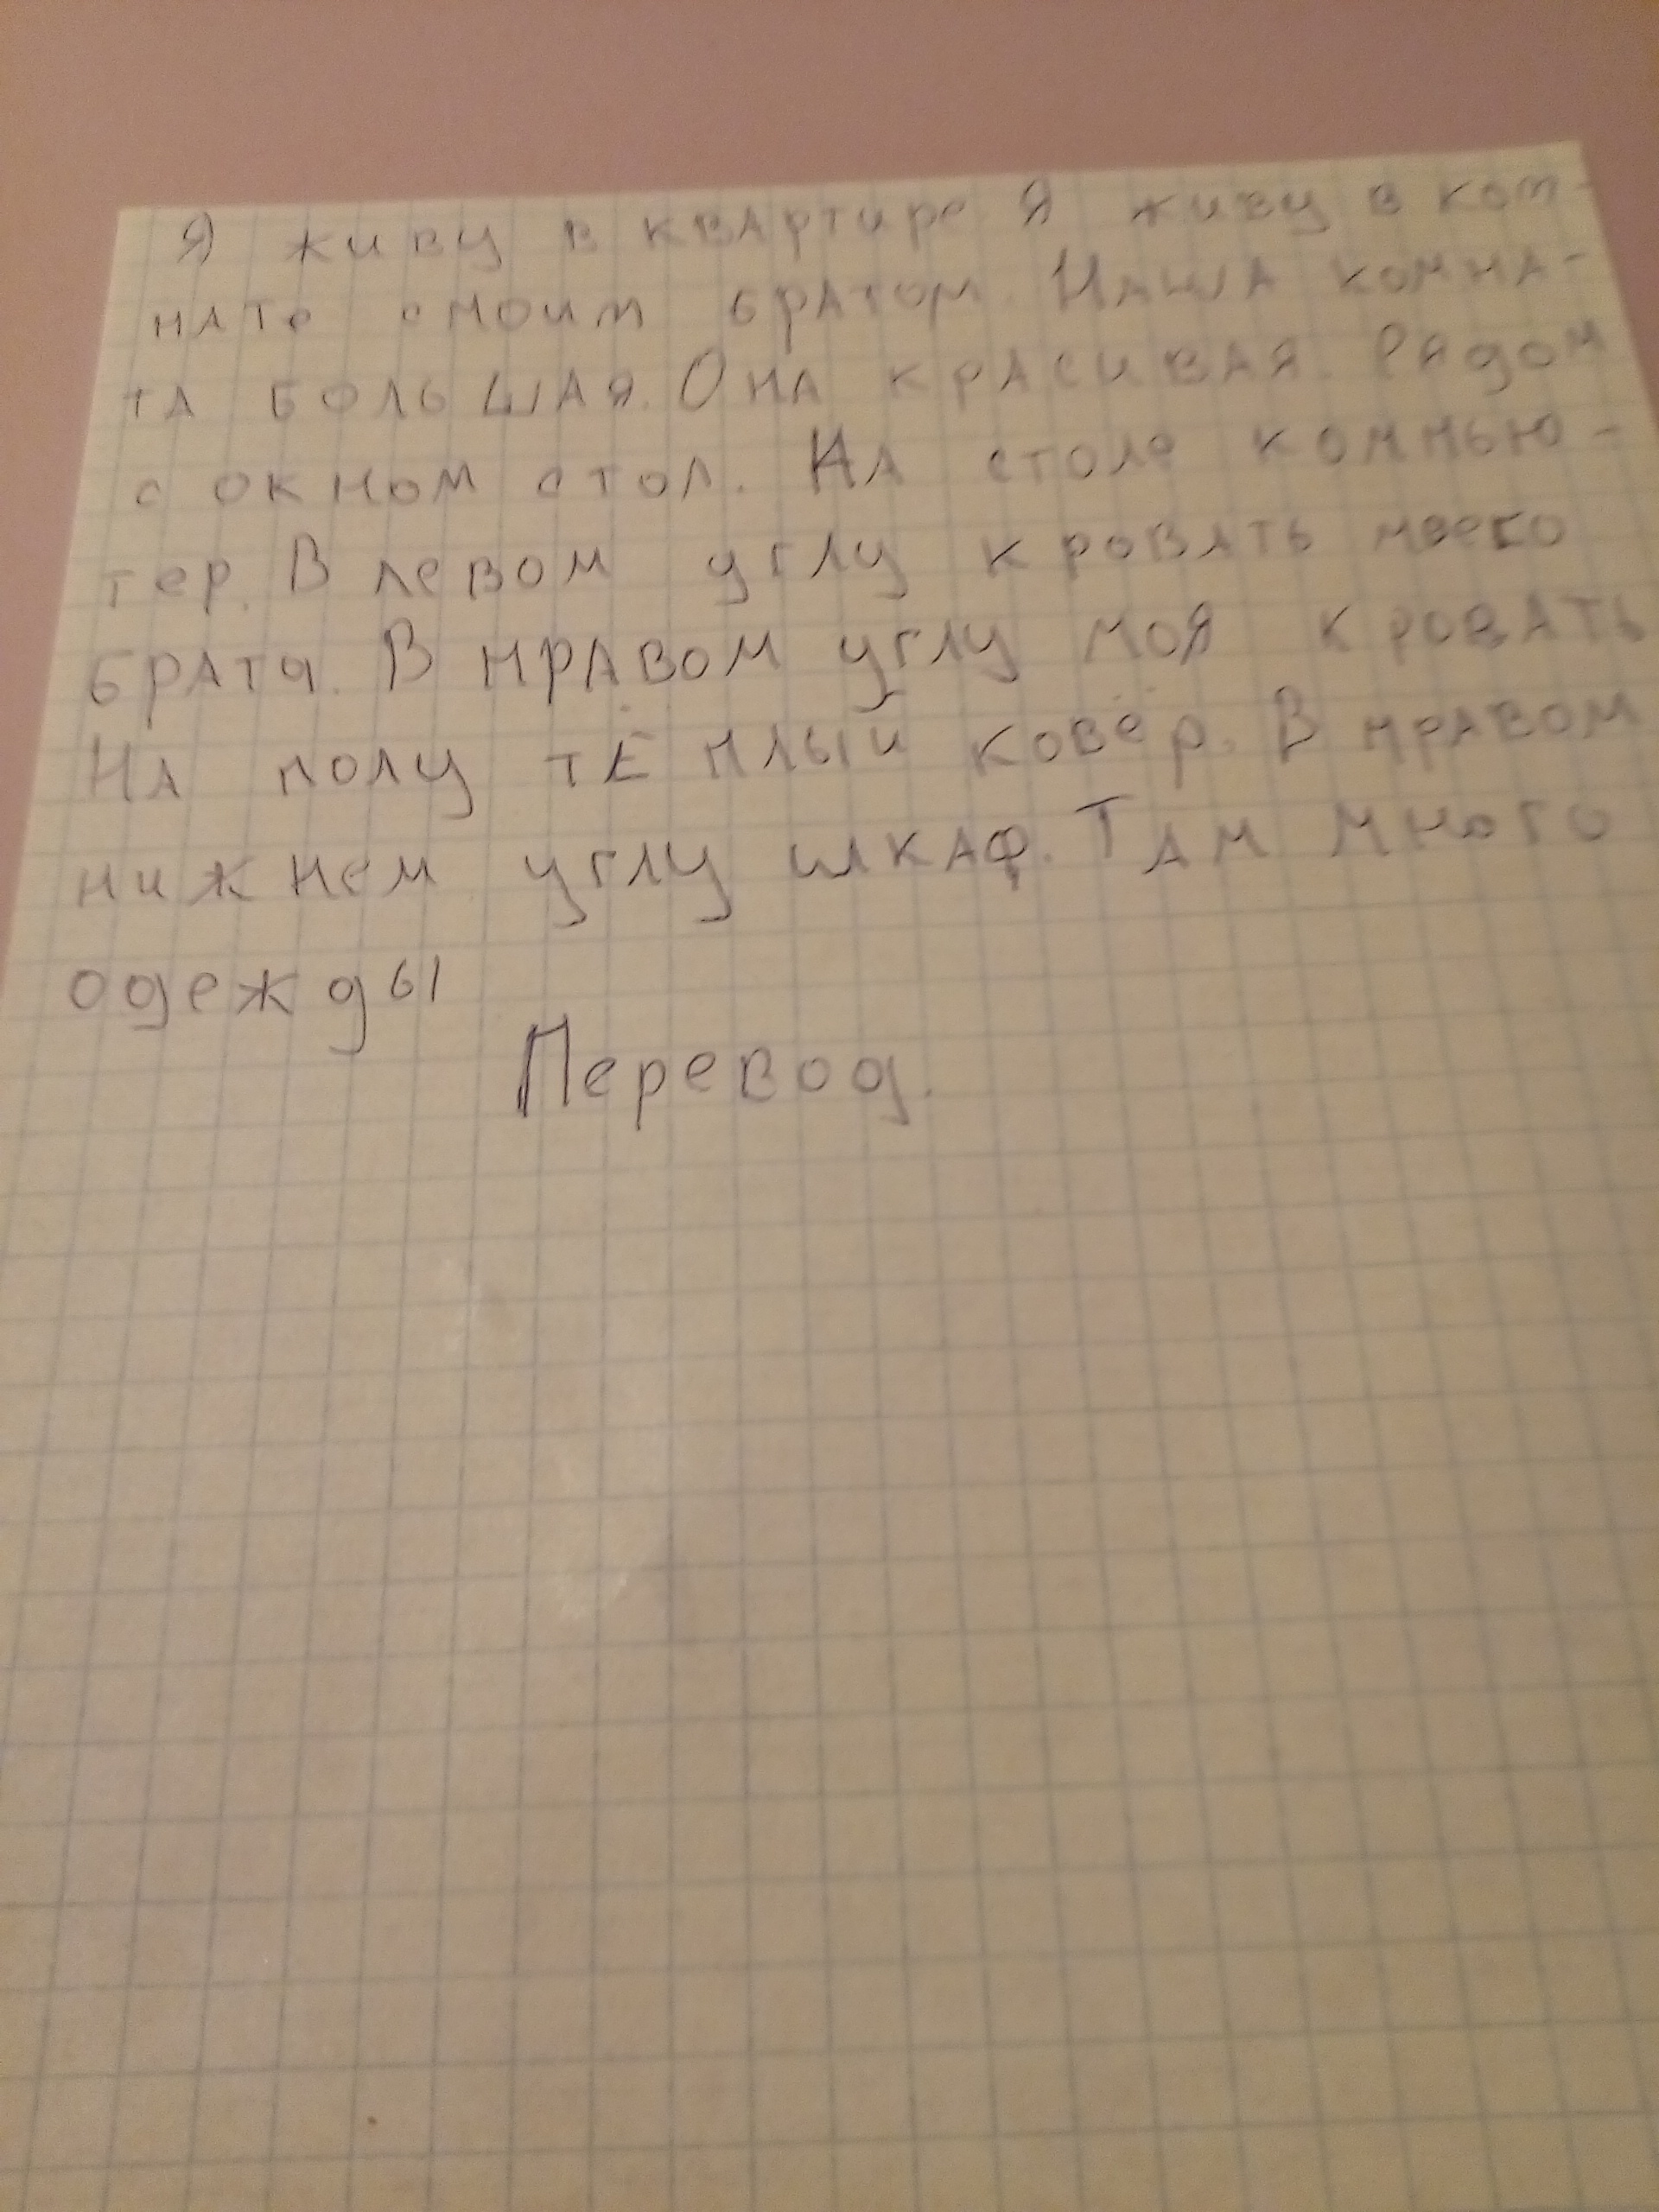 Я живу в квартире. Я живу в ком-
нате с моим братом. Наша комна-
та большая. Она красивая. Рядом
с окном стол. На столе компью-
тер. В левом углу кровать моего
брата. В правом углу моя кровать
На полу тёплый ковёр. В правом
нижнем углу шкаф. Там много
одежды
Перевод.